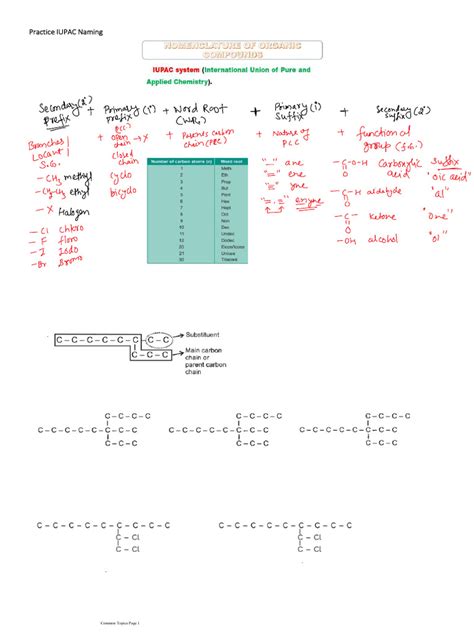 Practice IUPAC Naming
NOMENCLATURE OF ORGANIC
COMPOUNDS
IUPAC system (International Union of Pure and
Applied Chemistry).
Secondary (2°) Prefix + Primary (1°) Prefix + Word Root (WR) + Primary (1°) Suffix + Secondary (2°) Suffix
Branches | Locant | S.G. + (PCC) open chain → X + Parents carbon chain (PCC) + Nature of PCC + functional group (f.g.)
closed chain
cyclo
bicyclo
- CH3 methyl
- CH2-CH3 ethyl
- X Halogen
- Cl Chloro
- F floro
- I Iodo
- Br Bromo
Number of carbon atoms (n) Word root
1 Meth
2 Eth
3 Prop
4 But
5 Pent
6 Hex
7 Hept
8 Oct
9 Non
10 Dec
11 Undec
12 Dodec
20
21
30
"-" ane
"=" ene
"≡" yne
"=,≡" enyne
-C-O-H Carboxylic acid Suffix "oic acid"
O
-C-H aldehyde "al"
O
-C- Ketone "one"
O
-OH alcohol "ol"
C-C-C-C-C-C-C-C → Substituent
C-C-C → Main carbon
chain or
parent carbon
chain
C-C-C-C C-C-C-C C-C-C-C
C-C-C-C-C-C-C-C-C C-C-C-C-C-C-C-C-C C-C-C-C-C-C-C-C-C
C-C-C C-C-C C-C-C
C-C-C-C-C-C-C-C-C-C C-C-C-C-C-C-C-C-C-C
C-Cl C-Cl
C-Cl C-Cl
Common Topics Page 1